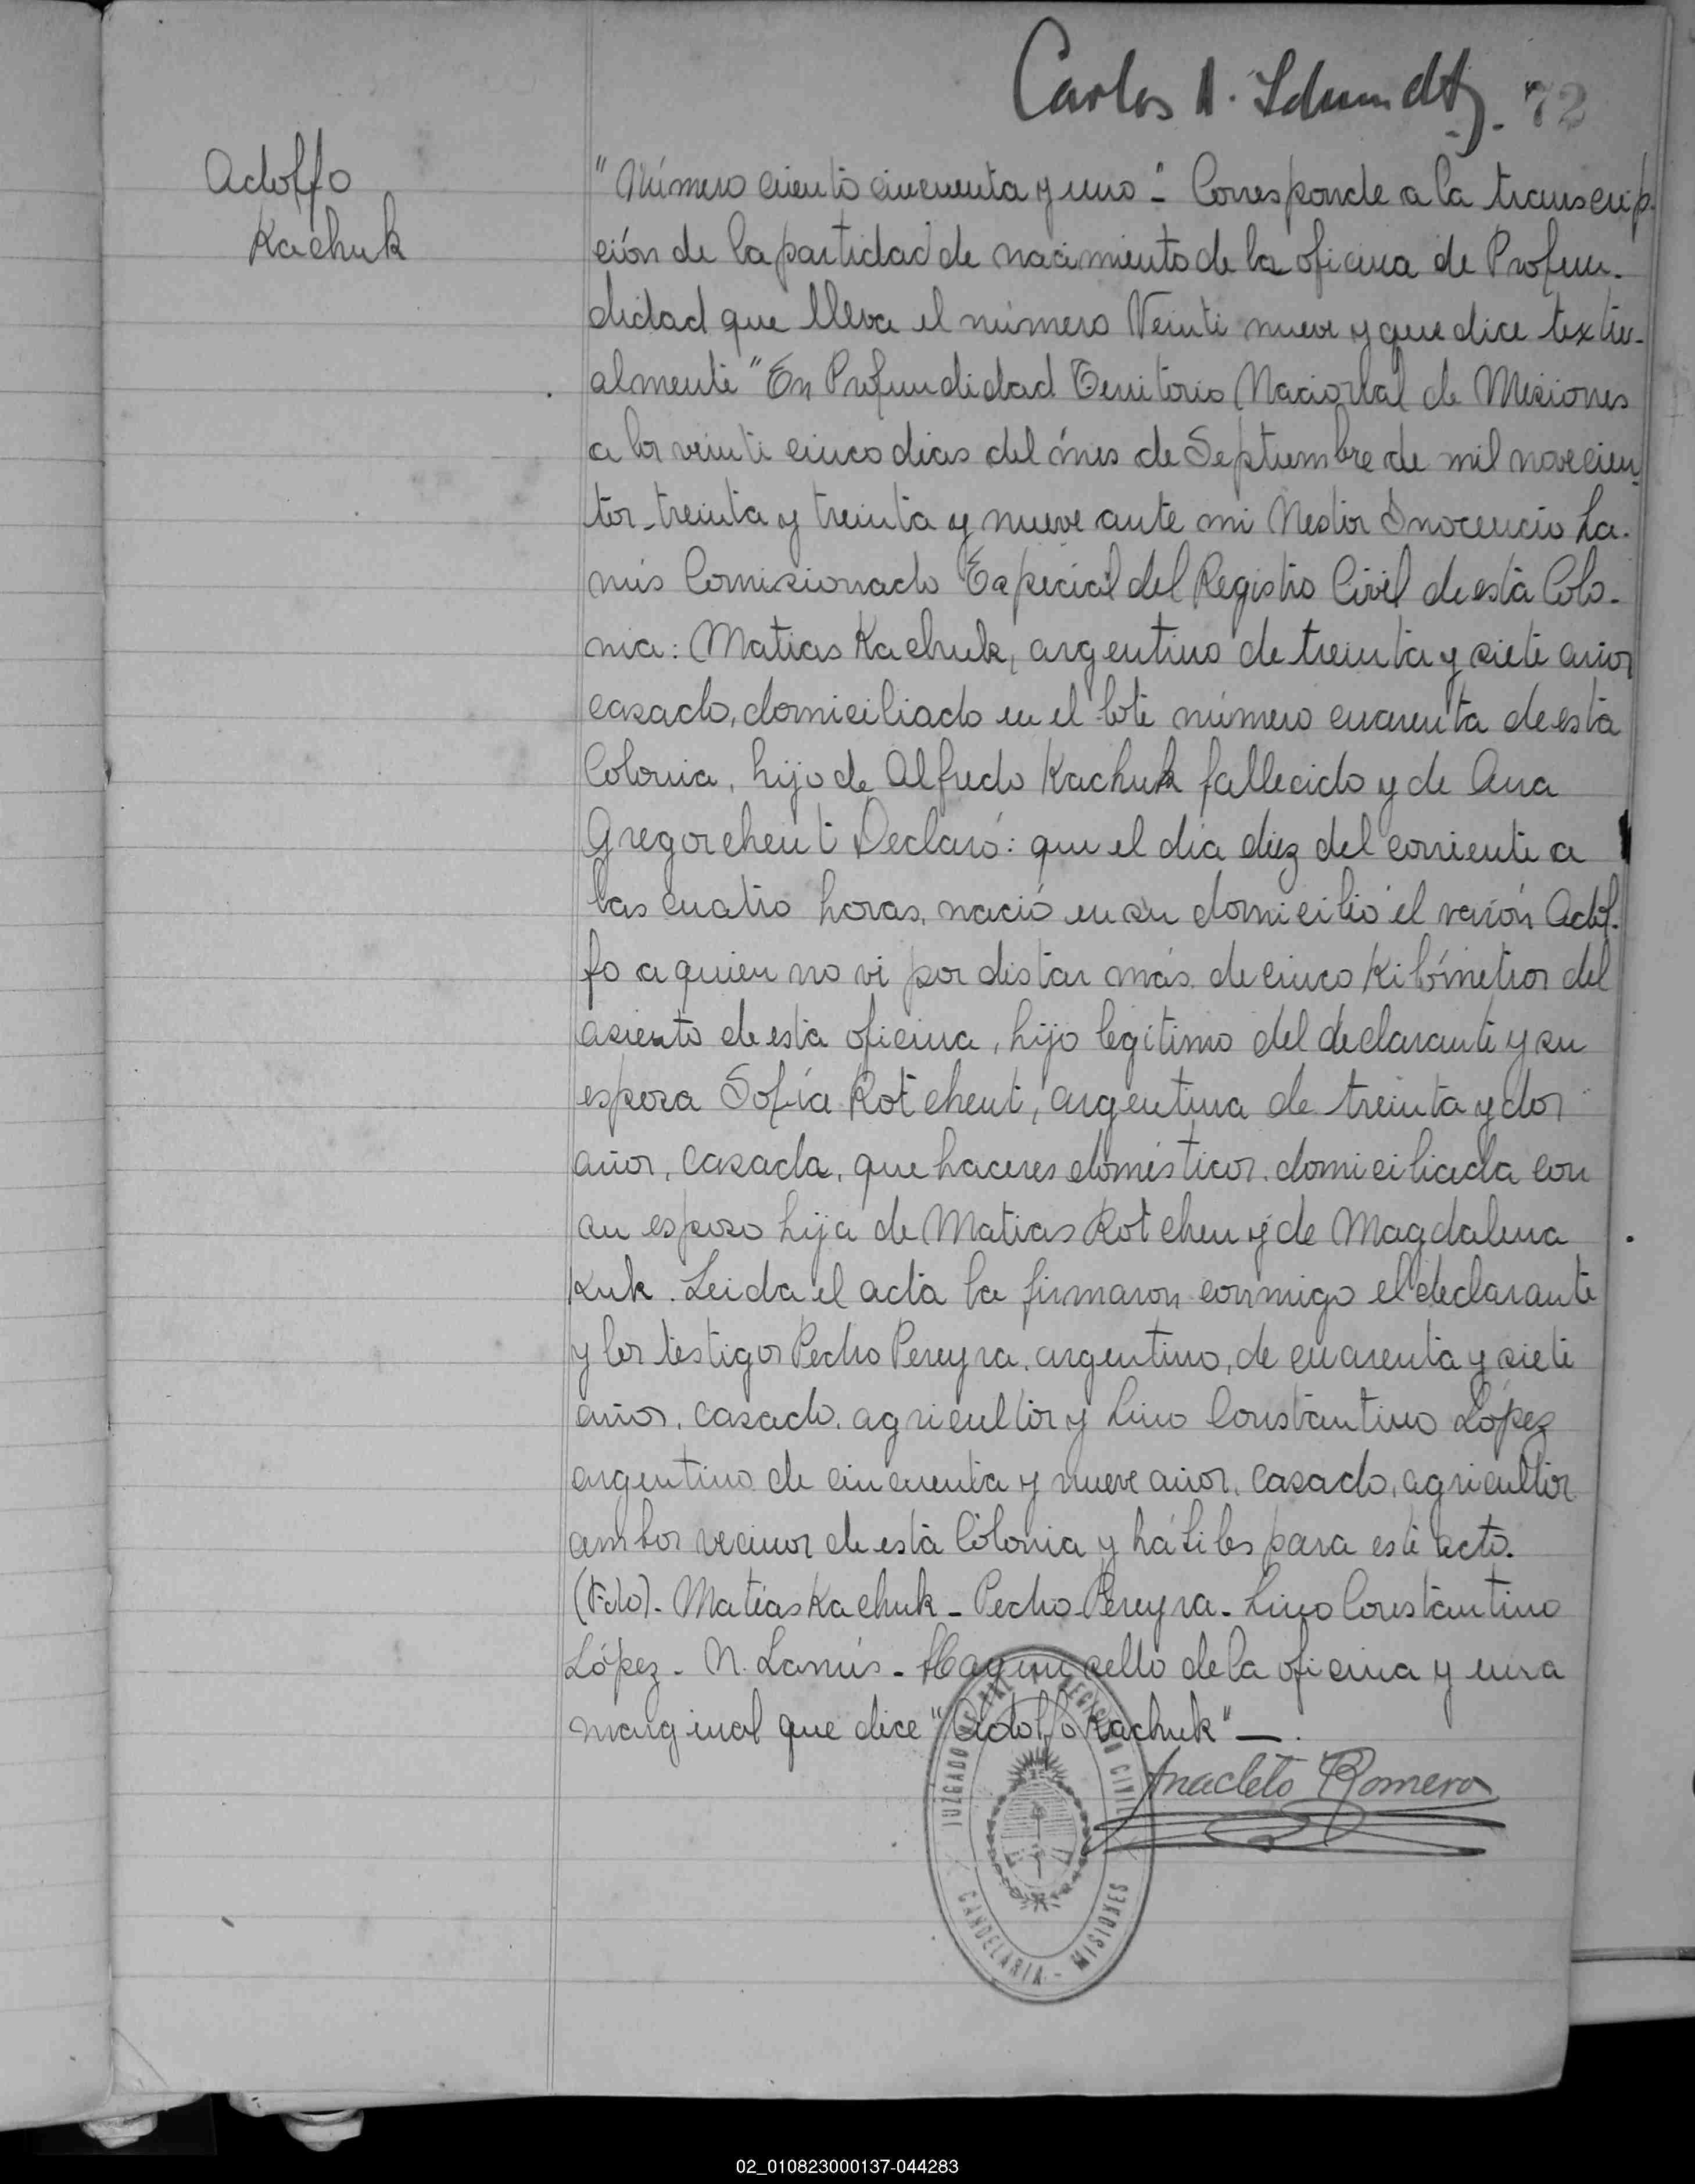 Carlos A. Schmidt. 72
Adolfo
Kachuk
"Número ciento cincuenta y uno"- Corresponde a la transcrip-
ción de la partidad de nacimiento de la oficina de Profun-
didad que lleva el número Veinti nueve y que dice textu-
almente "En Profundidad Territorio Nacional de Misiones
a los veinti cinco dias del mes de Septiembre de mil novecien-
tos treinta y treinta y nueve ante mi Nestor Inocencio La-
nús Comisionado Especial del Registro Civil de esta Colo-
nia: Matias Kachuk, argentino de treinta y siete años
casado, domiciliado en el lote número cuarenta de esta
Colonia, hijo de Alfredo Kachuk fallecido y de Ana
Gregorcheut Declaró: que el día diez del corriente a
las cuatro horas, nació en su domicilio el varón Adol-
fo a quien no vi por distar más de cinco Kilómetros del
asiento de esta oficina, hijo legítimo del declarante y su
esposa Sofía Rotcheut, argentina de treinta y dos
años, casada, que haceres domésticos, domiciliada con
su esposo hija de Matias Rotcheu y de Magdalena
Kuk. Leida el acta la firmaron conmigo el declarante
y los testigos Pedro Pereyra, argentino, de cuarenta y siete
años, casado, agricultor y Lino Constantino López
argentino de cincuenta y nueve años, casado, agricultor
ambos vecinos de esta Colonia y hábiles para este acto.
(Fdo). Matías Kachuk - Pedro Pereyra - Lino Constantino
López - N. Lanús - Hay un sello de la oficina y una
marginal que dice "Adolfo Kachuk" —.
Anacleto Romero
JUZGADO DE PAZ Y REGISTRO CIVIL
CANDELARIA - MISIONES
02_010823000137-044283